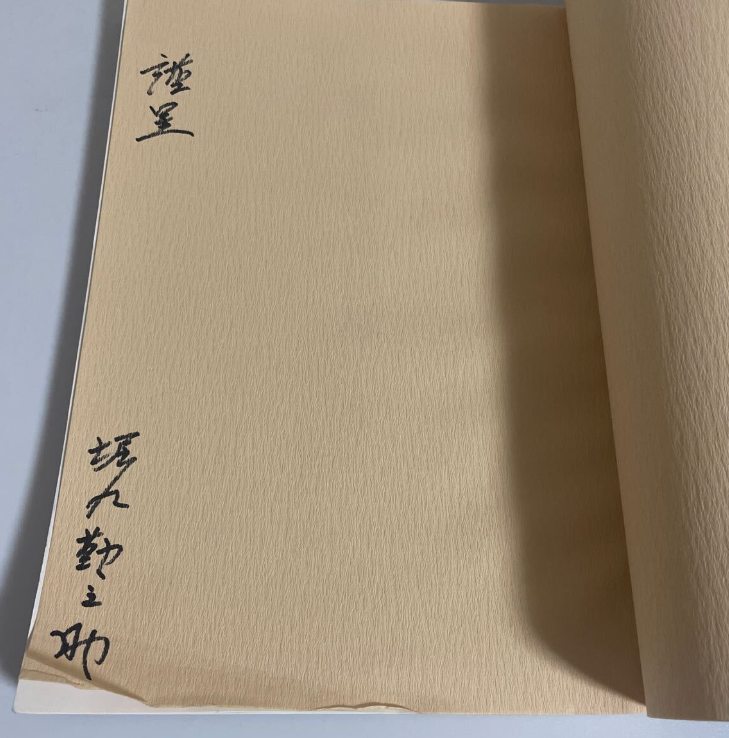 謹呈
堀内勤之助